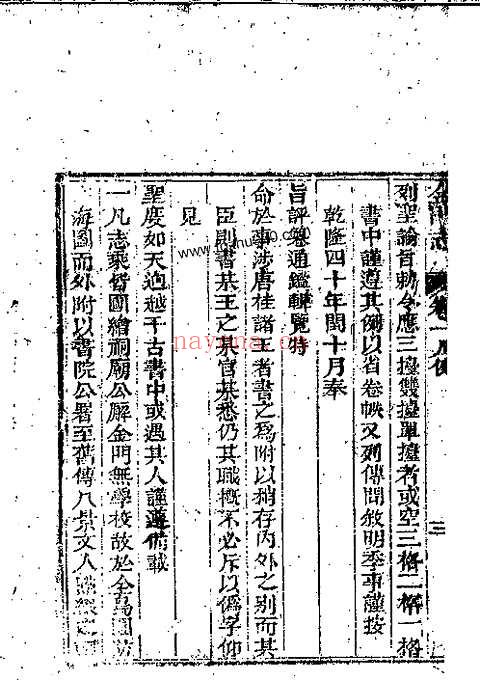 金門志 卷一 凡例 三
列聖諭旨勅令應三擡雙擡單擡者或空三格二格一格
書中謹遵其例以省卷帙又列傳間敘明季事謹按
乾隆四十年閏十月奉
旨評纂通鑑輯覽特
命於事涉唐桂諸王者書之爲附以稍存內外之別而其
臣則書某王之某官某悉仍其職概不必斥以僞字仰
見
聖度如天逈越千古書中或遇其人謹遵備載
一凡志乘皆圖繪祠廟公廨金門無學校故於全島圖防
海圖而外附以書院公署至舊傳八景文人
nayona.cn